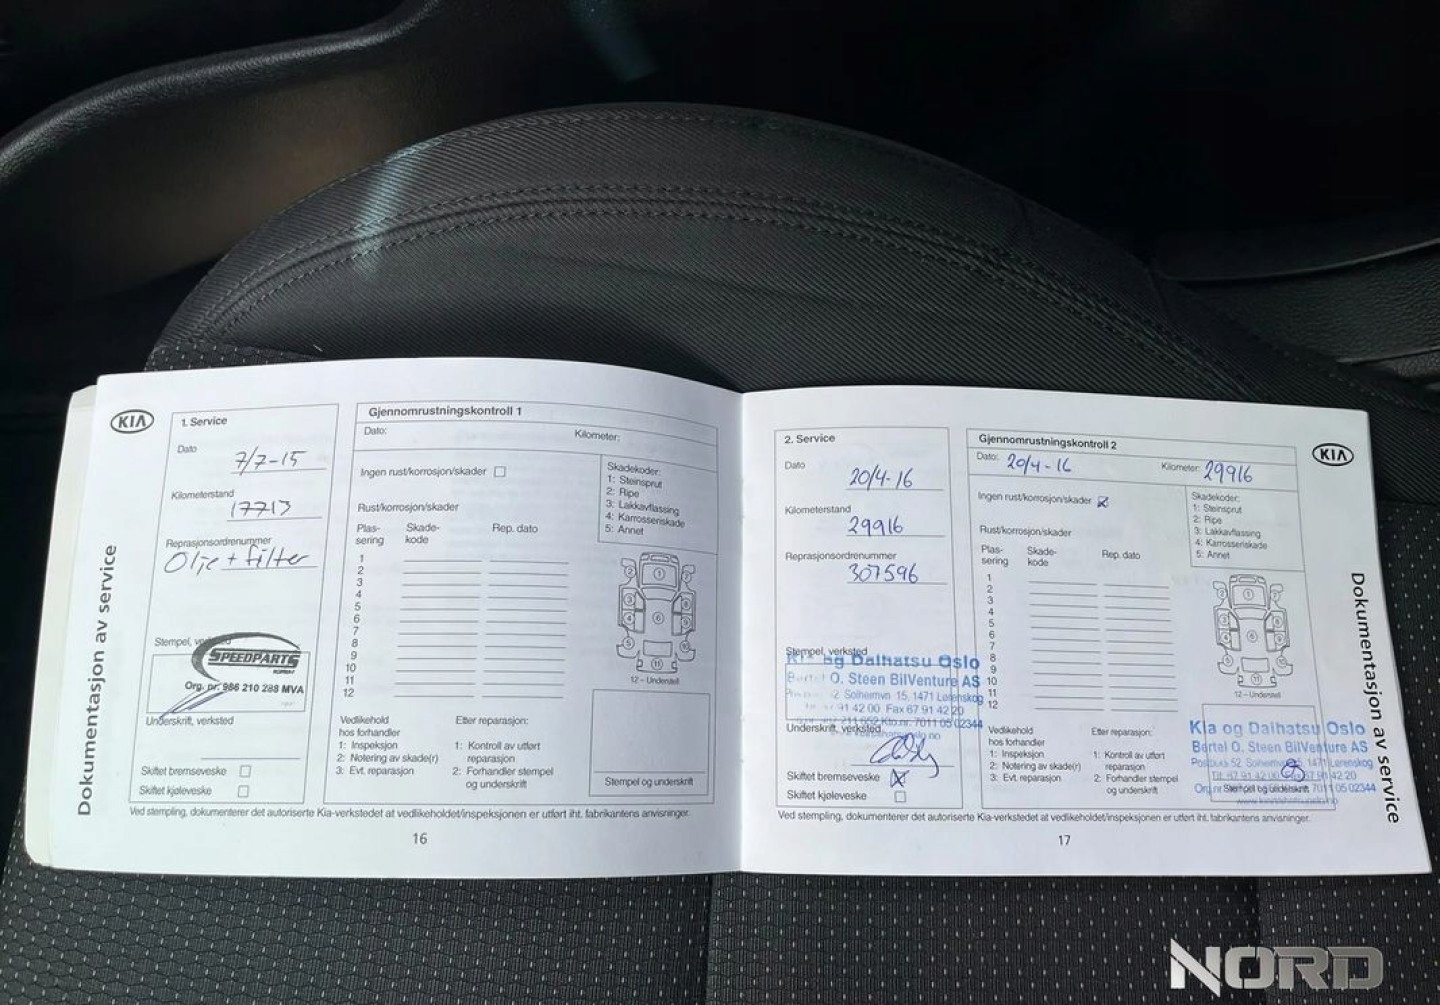 KIA
Dokumentasjon av service
1. Service
Dato
7/7-15
Kilometerstand
17713
Reprasjonsordrenummer
Olje + filter
Stempel, verksted
SPEEDPARTS
Org. nr: 986 210 288 MVA
Underskrift, verksted
Skiftet bremseveske
Skiftet kjøleveske
Gjennomrustningskontroll 1
Dato:
Kilometer:
Ingen rust/korrosjon/skader
Rust/korrosjon/skader
Plas-
sering
Skade-
kode
Rep. dato
1
2
3
4
5
6
7
8
9
10
11
12
Skadekoder:
1: Steinsprut
2: Ripe
3: Lakkavflassing
4: Karrosseriskade
5: Annet
12 – Understell
Vedlikehold
hos forhandler
1: Inspeksjon
2: Notering av skade(r)
3: Evt. reparasjon
Etter reparasjon:
1: Kontroll av utført
reparasjon
2: Forhandler stempel
og underskrift
Stempel og underskrift
Ved stempling, dokumenterer det autoriserte Kia-verkstedet at vedlikeholdet/inspeksjonen er utført iht. fabrikantens anvisninger.
16
2. Service
Dato
20/4-16
Kilometerstand
29916
Reprasjonsordrenummer
307596
Stempel, verksted
Kia og Daihatsu Oslo
Bertel O. Steen BilVenture AS
Solheimvn 15, 1471 Lørenskog
91 42 00 Fax 67 91 42 20
Kto.nr. 7011 05 02344
Underskrift, verksted
Skiftet bremseveske
Skiftet kjøleveske
Gjennomrustningskontroll 2
Dato: 20/4-16
Kilometer: 29916
Ingen rust/korrosjon/skader
Rust/korrosjon/skader
Plas-
sering
Skade-
kode
Rep. dato
1
2
3
4
5
6
7
8
9
10
11
12
Skadekoder:
1: Steinsprut
2: Ripe
3: Lakkavflassing
4: Karrosseriskade
5: Annet
12 – Understell
Vedlikehold
hos forhandler
1: Inspeksjon
2: Notering av skade(r)
3: Evt. reparasjon
Etter reparasjon:
1: Kontroll av utført
reparasjon
2: Forhandler stempel
og underskrift
Kia og Daihatsu Oslo
Bertel O. Steen BilVenture AS
Postboks 52 1471 Lørenskog
Tlf. 67 91 42 00 67 91 42 20
Org.nr 7011 05 02344
Stempel og underskrift
Ved stempling, dokumenterer det autoriserte Kia-verkstedet at vedlikeholdet/inspeksjonen er utført iht. fabrikantens anvisninger.
17
KIA
Dokumentasjon av service
NORD